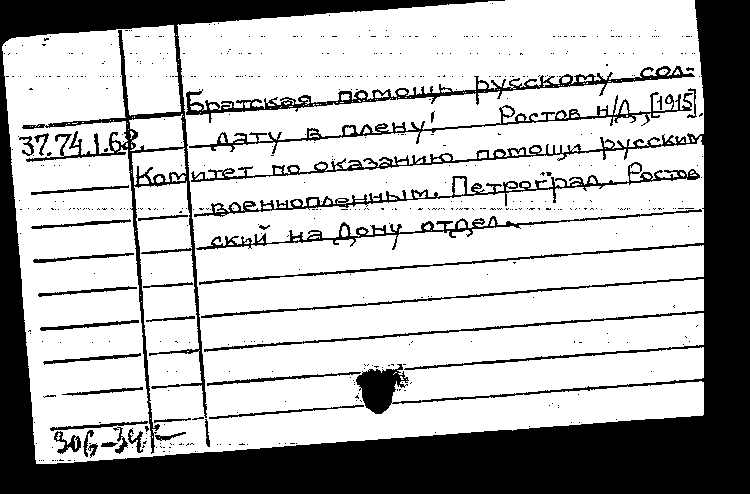 Братская помощь русскому сол-
37.74.1.68. дату в плену! Ростов н/Д, [1915].
Комитет по оказанию помощи русским
военнопленным. Петроград. Ростов
ский на Дону отдел.